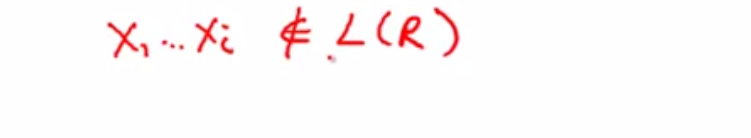 X₁...Xᵢ ∉ L(R)